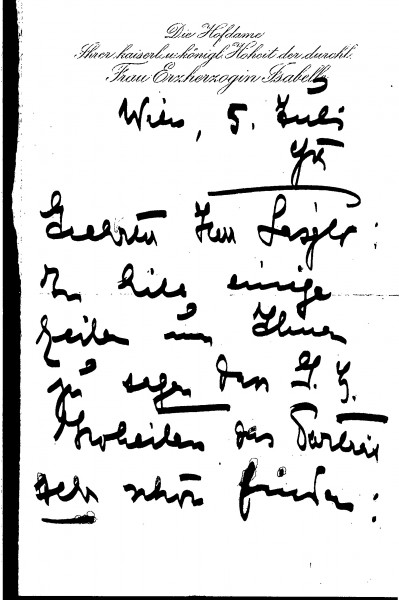 Die Hofdame
Ihrer kaiserl. u. königl. Hoheit der durchl.
Frau Erzherzogin Isabelle
Wien, 5. Juli
Geehrter Herr László:
In Eile einige
Zeilen um Ihnen
zu sagen dass I. H.
Hoheiten das Portrait
sehr schön finden: